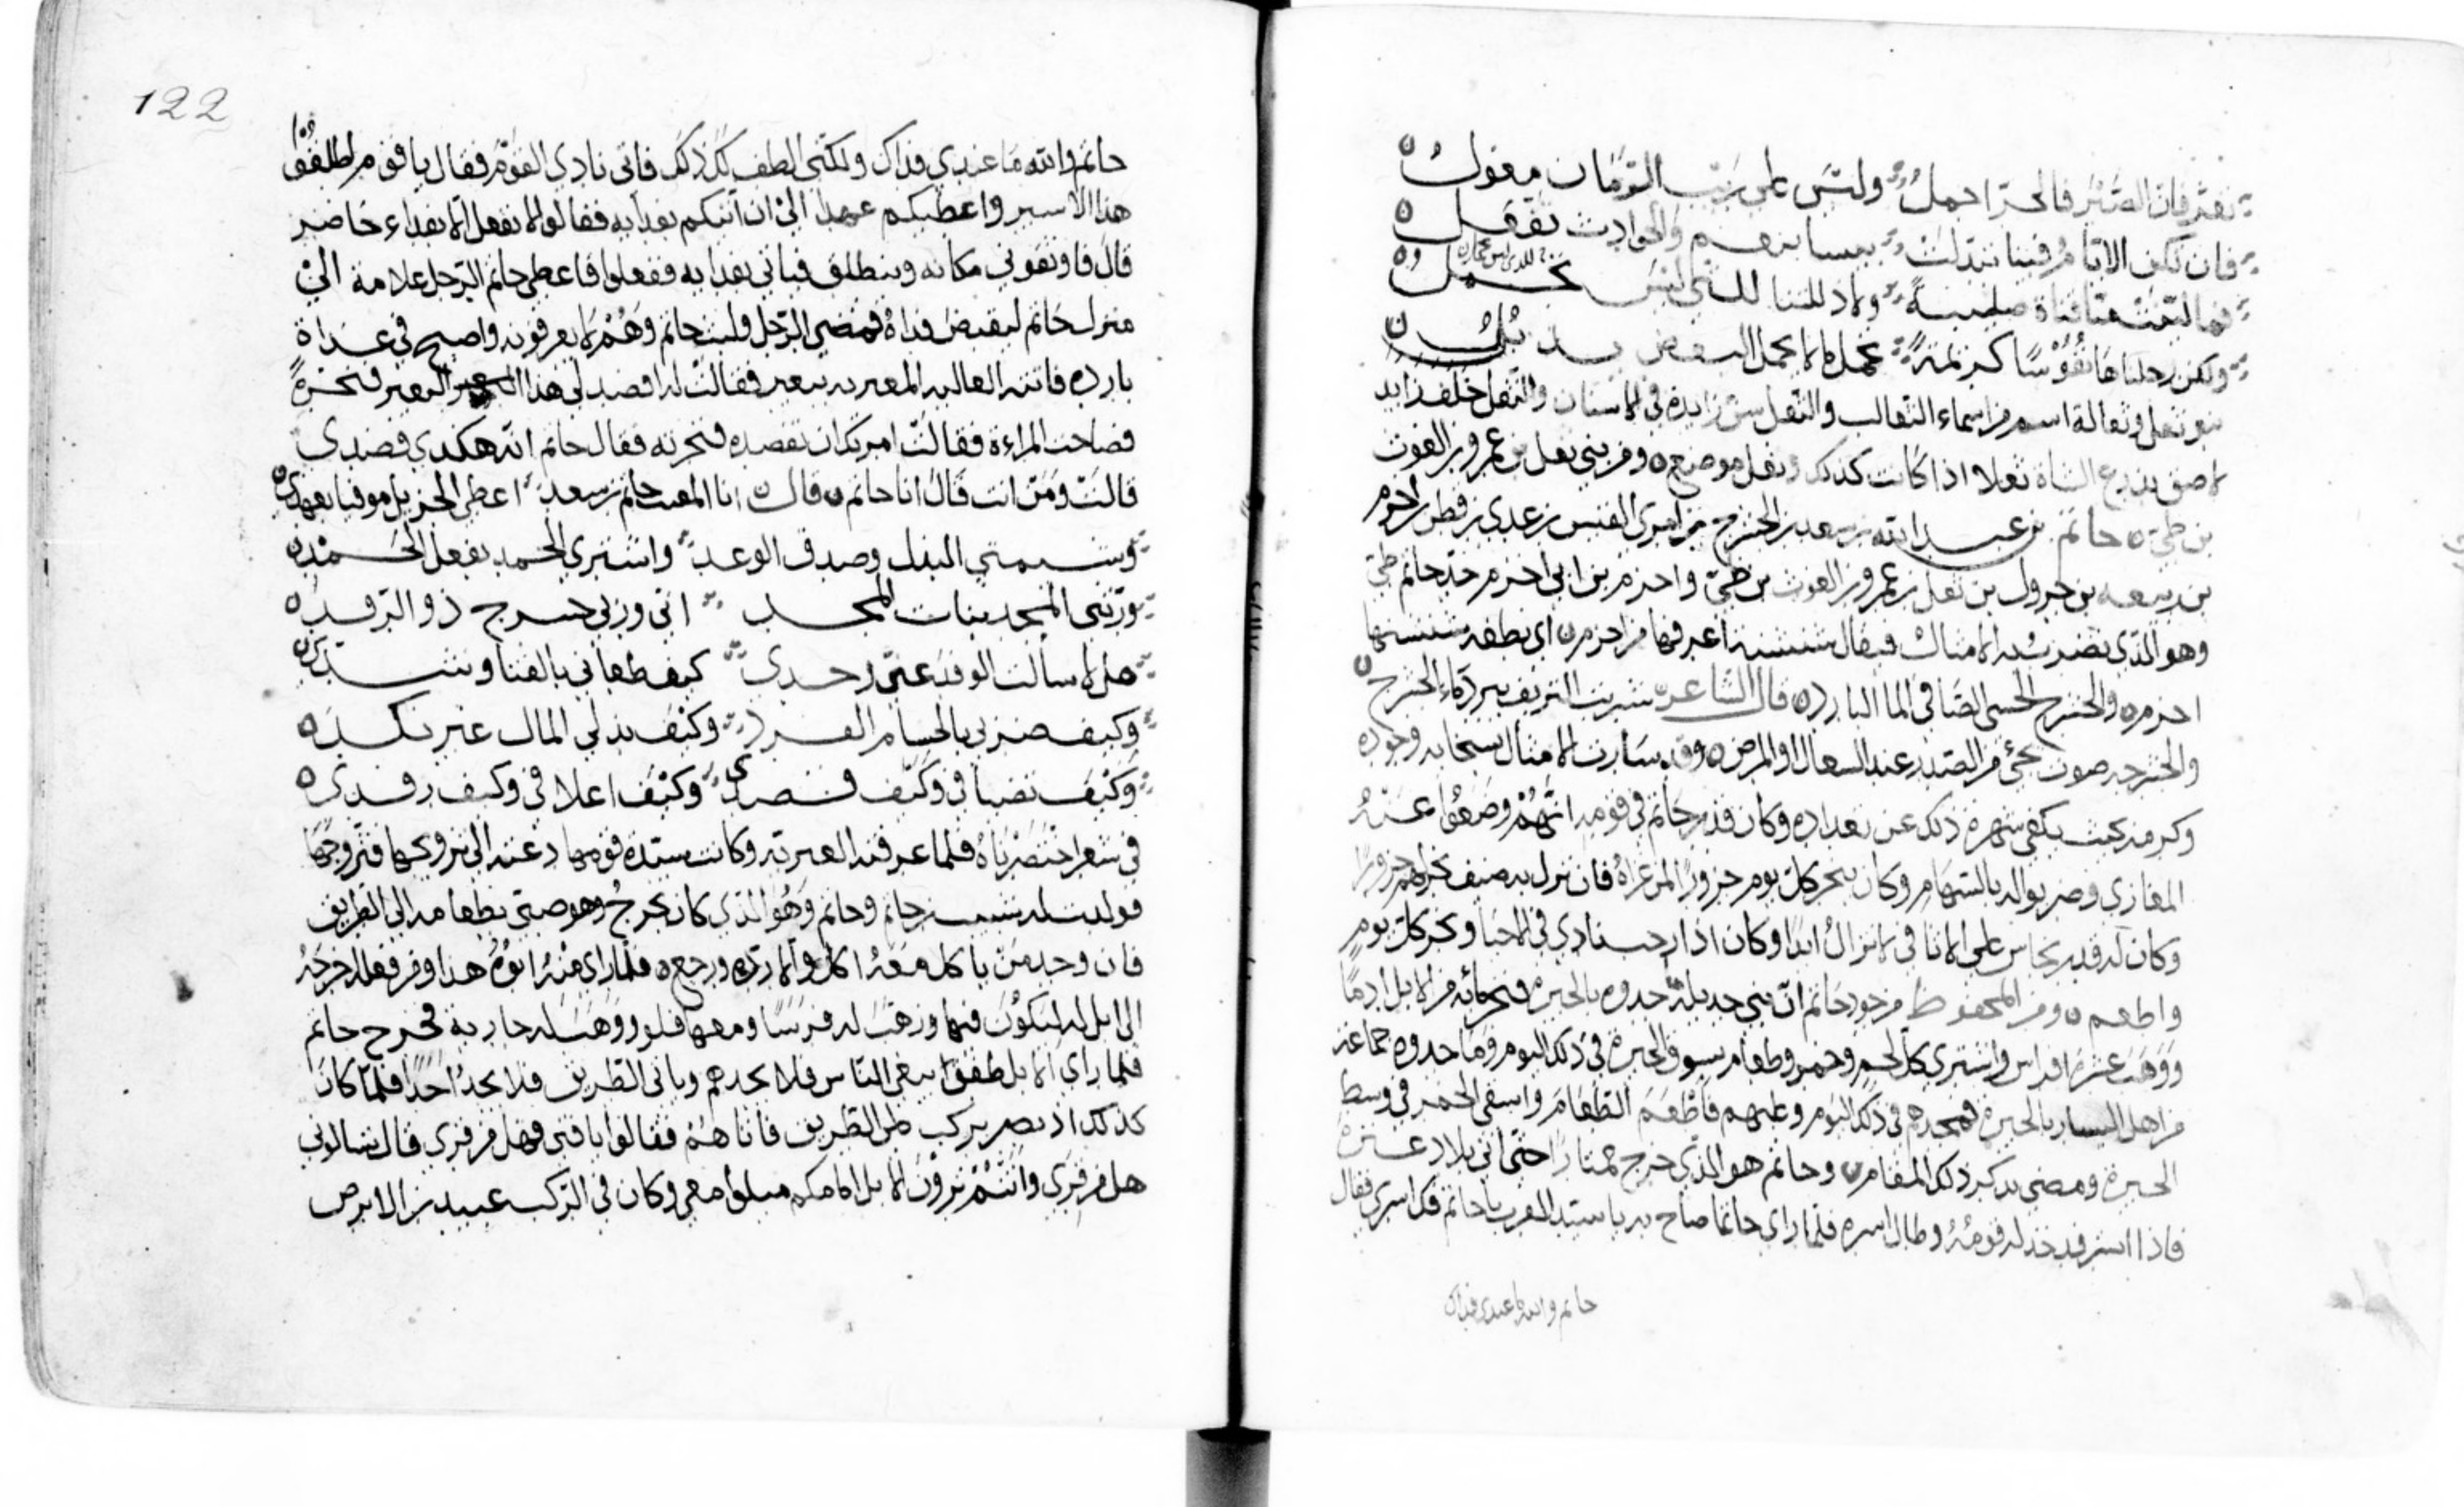 تعز فان الصبر فالحر اجمل وليس على ريب الزمان معول
فان تكن الايام فينا تبدلت ببوسا ونعم والحوادث تفعل
فما لينت منا قناة صليبة ولا ذللتنا للتي ليس تجمل
ولكن رحلناها نفوسا كريمة تحمل ما لا يحمل
بنو ثعل وثعالة اسم من اسماء الثعالب والثعل سن زايدة في الاسنان والثعل خلف زايد
لاصق بذرع الشاة ثعلا اذا كانت كذلك وثعل موضع ومن بني ثعل بن عمرو بن الغوث
بن طي حاتم بن عبد الله بن سعد بن الحشرج بن امرئ القيس بن عدي بن اخزم
بن ربيعه بن جرول بن ثعل بن عمرو بن الغوث بن طي واخزم بن ابي اخزم جد حاتم طي
وهو الذي يضرب به الامثال فيقال شنشنة اعرفها من اخزم اي نطفه
اخزم والحشرج الحسي الصافي الما البارد قال الشاعر شرب النزيف ببرد ماء الحشرج
والحشرجه صوت يجئ من الصدر عند السعال او المرض وقد سارت الامثال بسخايه وجوده
وكرمه بحيث يكفي شهرة ذلك عن تعداده وكان قدر حاتم في قومه انهم وضعوا عنه
المغازي وضربوا له بالسهام وكان ينحر كل يوم جزورا لمن عراه فان نزل به ضيف نحر لهم جزورا
وكان له قدر نحاس على الاثافي لا تنزل ابدا وكان اذا رجب نادي في الاحيا ونحر كل يوم
واطعم ومن المحفوظ من جود حاتم ان بني جديلة بالحيرة من الابل
ووهب عشرة افراس واشترى كل لحم وخمر وطعام بسوق الحيرة في ذلك اليوم جماعة
من اهل اليسار بالحيرة في ذلك اليوم وعليهم فاطعم الطعام واسقى الخمر في وسط
الحيرة ومضى بذكر ذلك المقام وحاتم هو الذي خرج ممتارا حتى اتى بلاد عنزة
فاذا اسير قد خذله قومه وطال اسره فلما راى حاتما صاح به يا سيد العرب يا حاتم فك اسري فقال
حاتم والله ما عندي فداك
122
حاتم والله ما عندي فداك ولكني الطف لك ذلك فاتى نادي القوم فقال يا قوم اطلقوا
هذا الاسير واعطيكم عهدا الي ان آتيكم بفدايه فقالوا لا نفعل الا بفداء حاضر
قال فاوثقوني مكانه وينطلق فياتي بفدايه ففعلوا فاعطى حاتم الرجل علامة الي
منزل حاتم ليقبض فداه فمضى الرجل ولبث حاتم وهم لا يعرفونه واصبح في غداة
باردة فاتته العاليه العنزيه ببعير فقالت له افصد لي هذا البعير فنحره
فصاحت المراءة فقالت امرتك ان تفصده فنحرته فقال حاتم انه هكذي فصدي
قالت ومن انت قال انا حاتم قال انا المغيث حاتم بن سعد اعطي الجزيل موفيا بعهدي
وشيمتي البذل وصدق الوعد واشتري الحمد بفعل الحمد
ورثني المجد بنات المجد اني وزني حشرج ذو الرفد
هل لا سالت الوفد عني وحدي كيف طعاني بالقنا وشدي
وكيف ضربي بالحسام الفرد وكيف بذلي المال غير نكد
وكيف تضيافي وكيف قصدي وكيف اعلافي وكيف رفدي
في شعر اختصرناه فلما عرفته العنزيه وكانت سيدة قومها دعته الى تزويجها فتزوجها
فولدت له شبيب بن حاتم وحاتم وهو الذي كان يخرج وهو صبي بطعامه الى الطريق
فان وجد من ياكل معه اكل والا رده ورجع فلما راى منه ابوه هذا وفر فعله اخرجه
الى ابل له ليكون فيها ووهب له فرسا ومعها فلو ووهب له جارية فخرج حاتم
فلما راي الابل طفق يبغي الناس فلا يجدهم وياتي الطريق فلا يجد احدا فلما كان
كذلك اذ بصر بركب على الطريق فاتاهم فقالوا يا فتى فهل من قرى قال تسالوني
هل من قرى وانتم ترون الابل امامكم ميلوا معي وكان في الركب عبيد بن الابرص